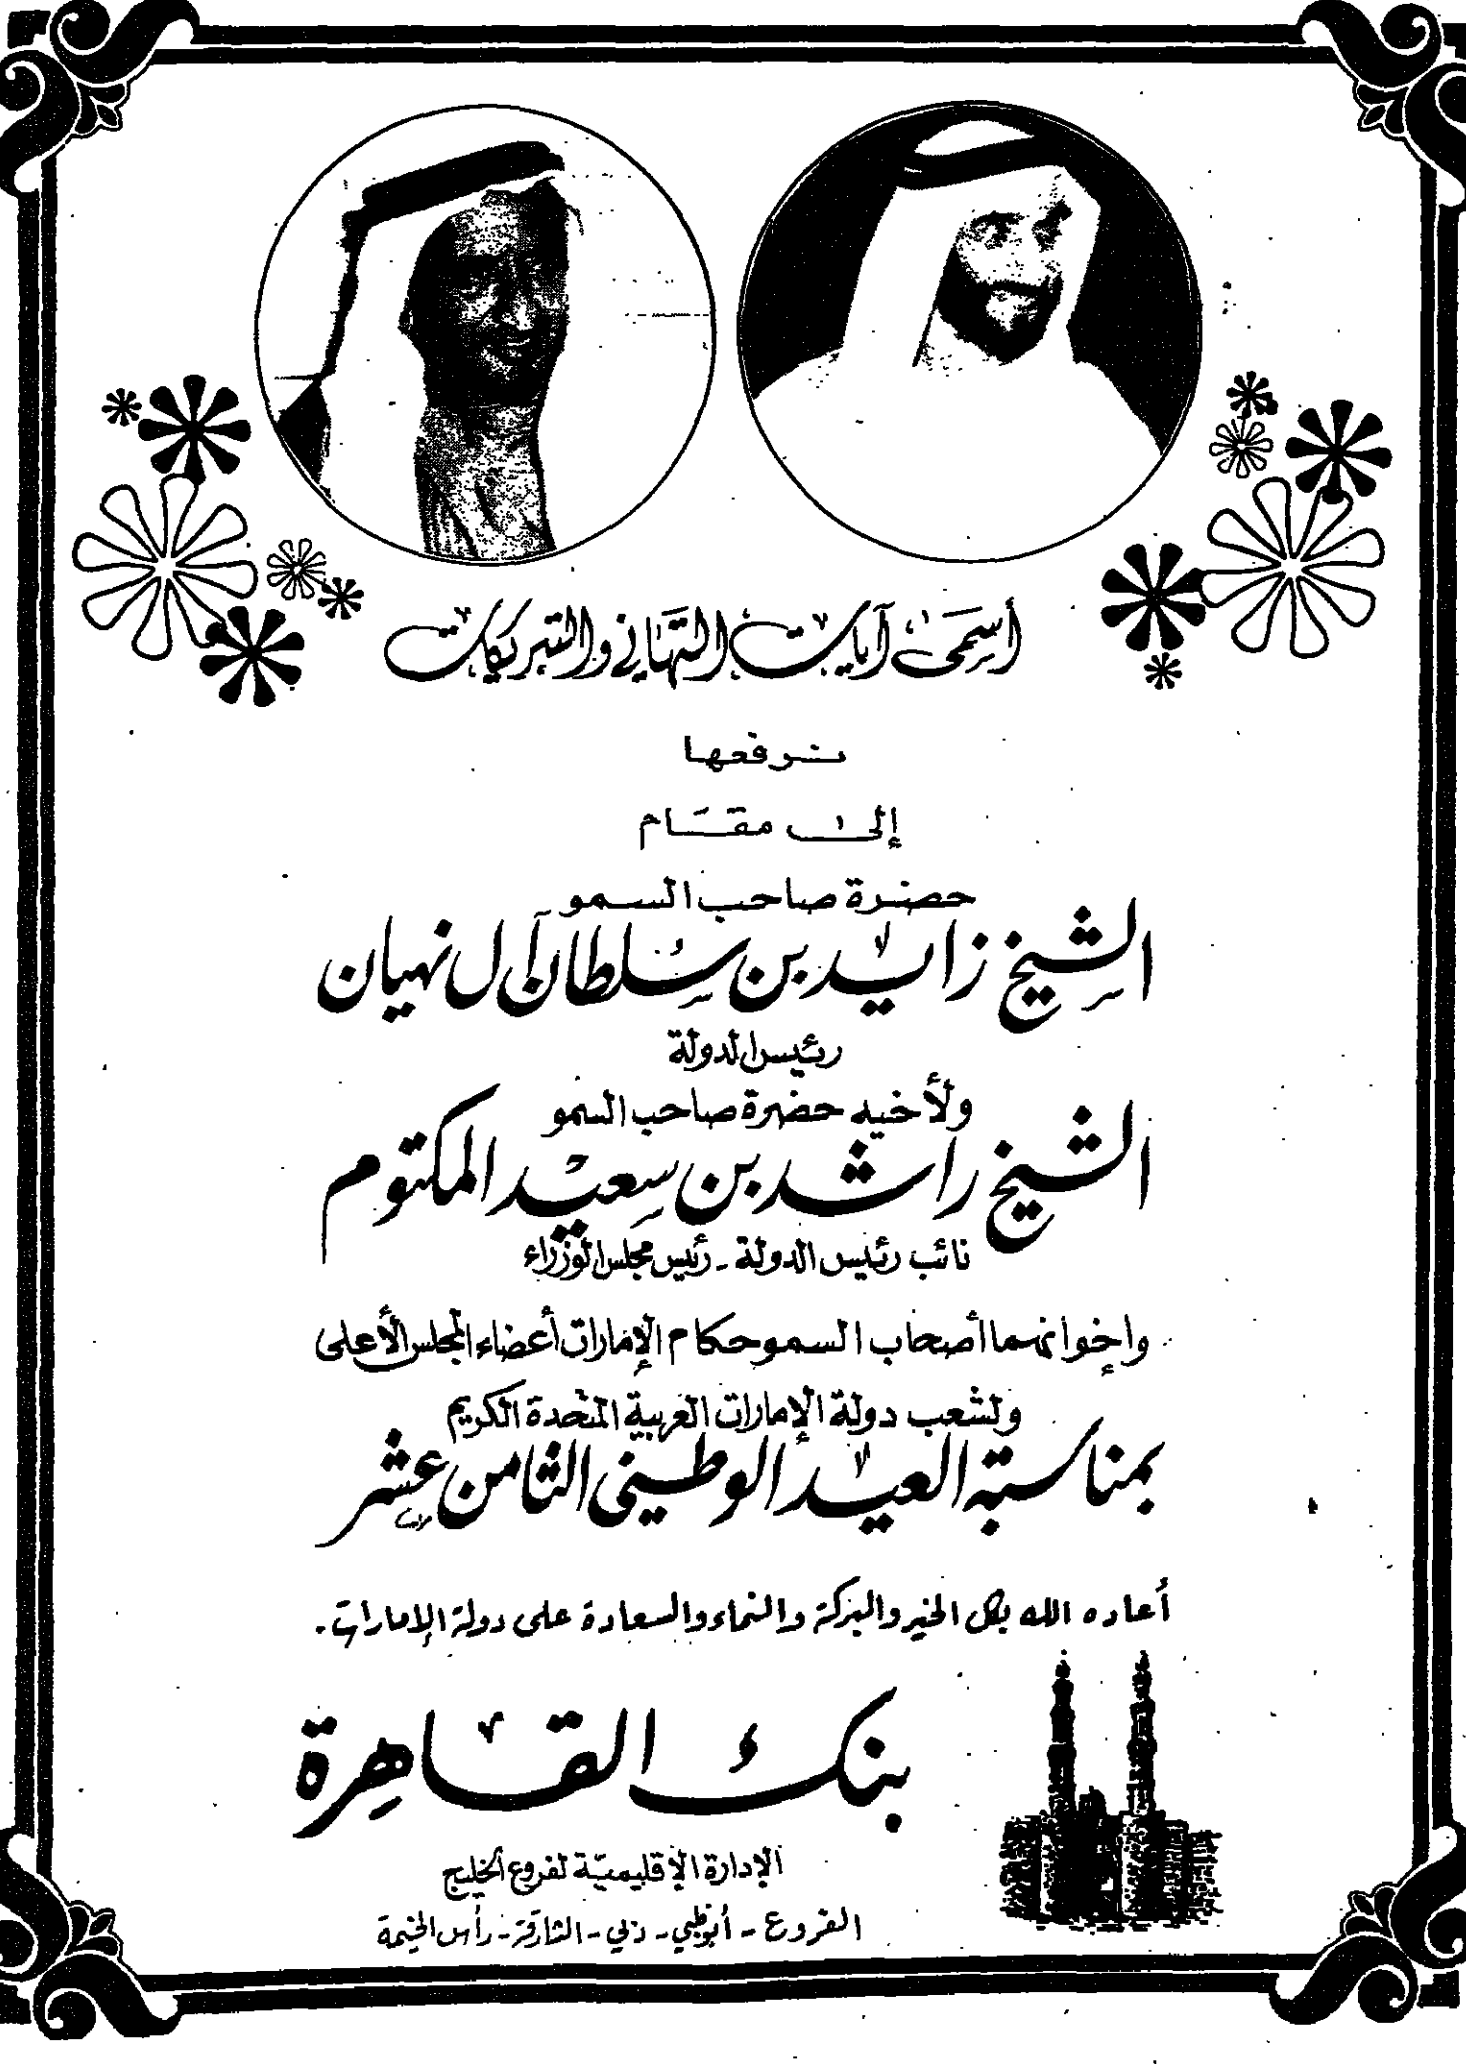 أسمى آيات التهاني والتبريكات
نرفعها
إلى مقام
حضرة صاحب السمو
الشيخ زايد بن سلطان آل نهيان
رئيس الدولة
ولأخيه حضرة صاحب السمو
الشيخ راشد بن سعيد المكتوم
نائب رئيس الدولة - رئيس مجلس الوزراء
وإخوانهما أصحاب السمو حكام الإمارات أعضاء المجلس الأعلى
ولشعب دولة الإمارات العربية المتحدة الكريم
بمناسبة العيد الوطني الثامن عشر
أعاده الله بكل الخير والبركة والنماء والسعادة على دولة الإمارات.
بنك القاهرة
الإدارة الإقليمية لفروع الخليج
الفروع - أبوظبي - دبي - الشارقة - رأس الخيمة